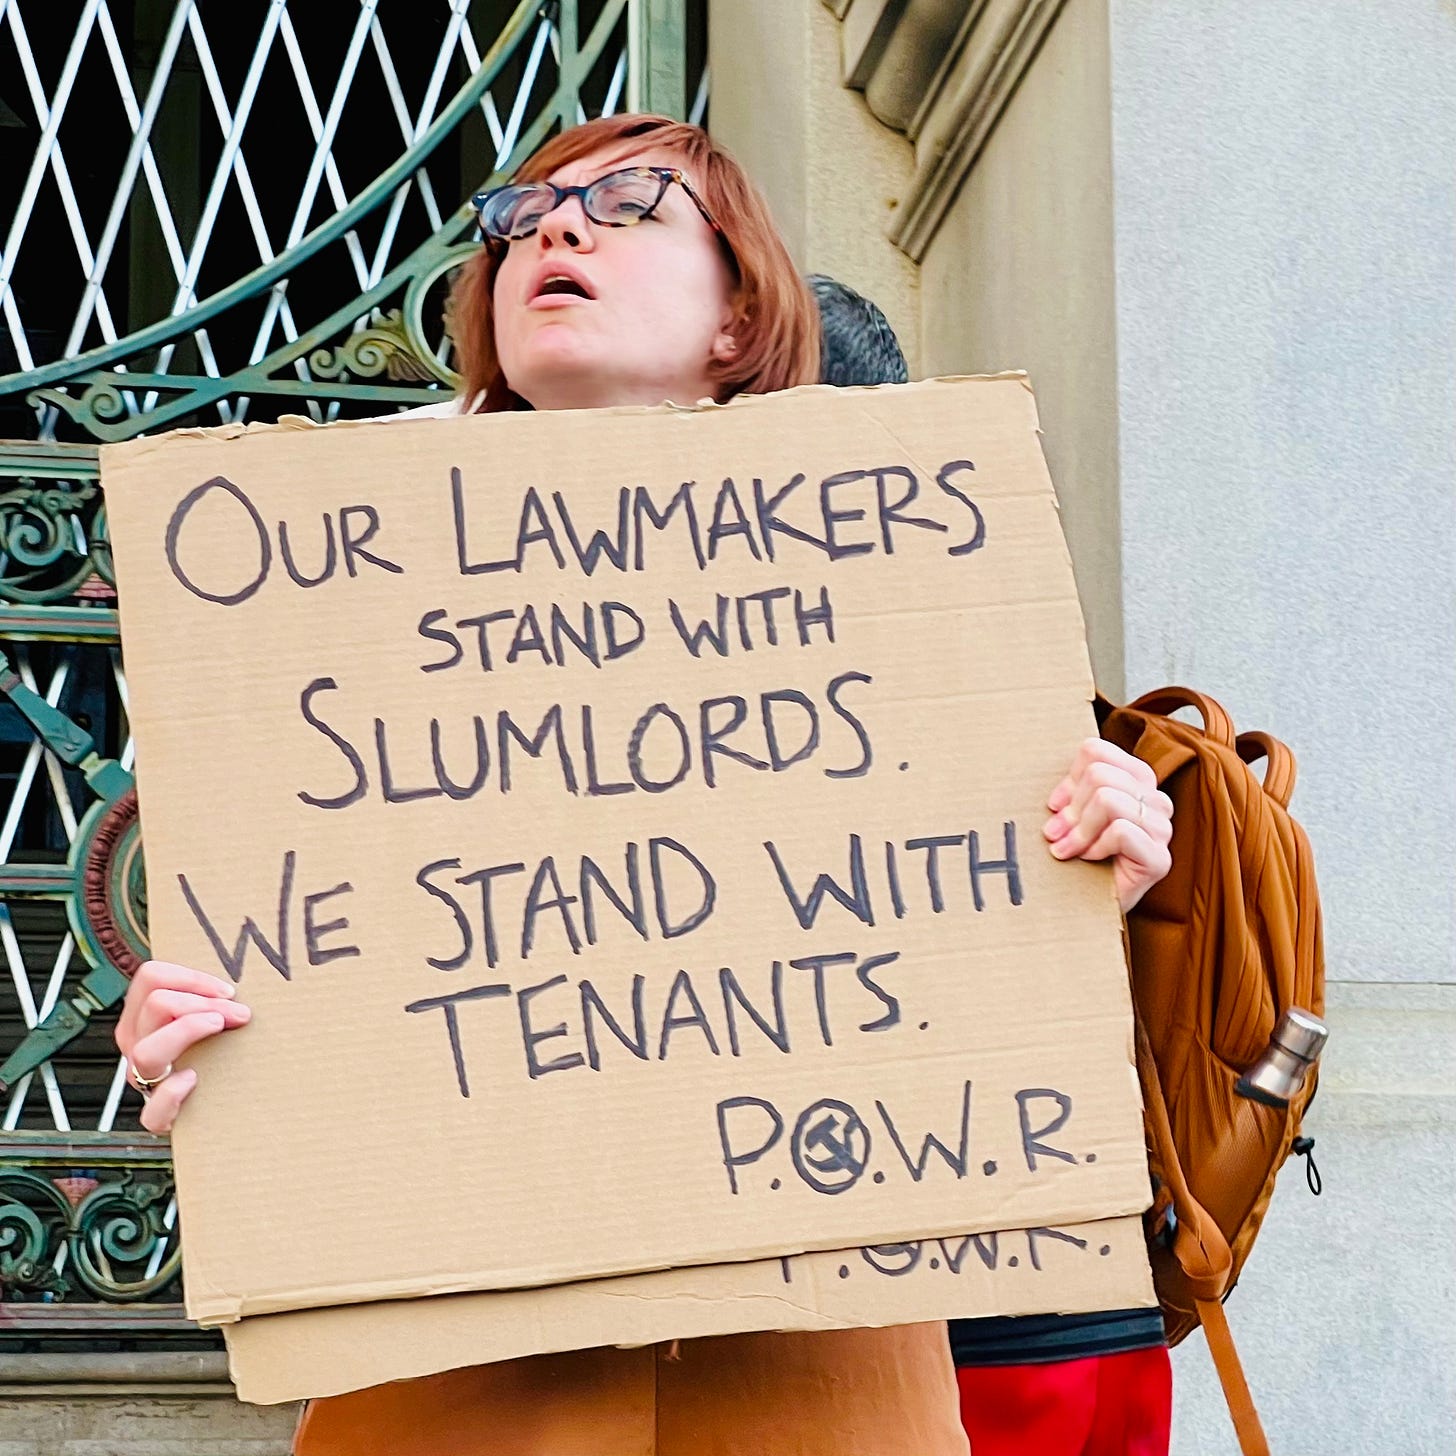 OUR LAWMAKERS
STAND WITH
SLUMLORDS.
WE STAND WITH
TENANTS.
P.O.W.R.
P.O.W.R.